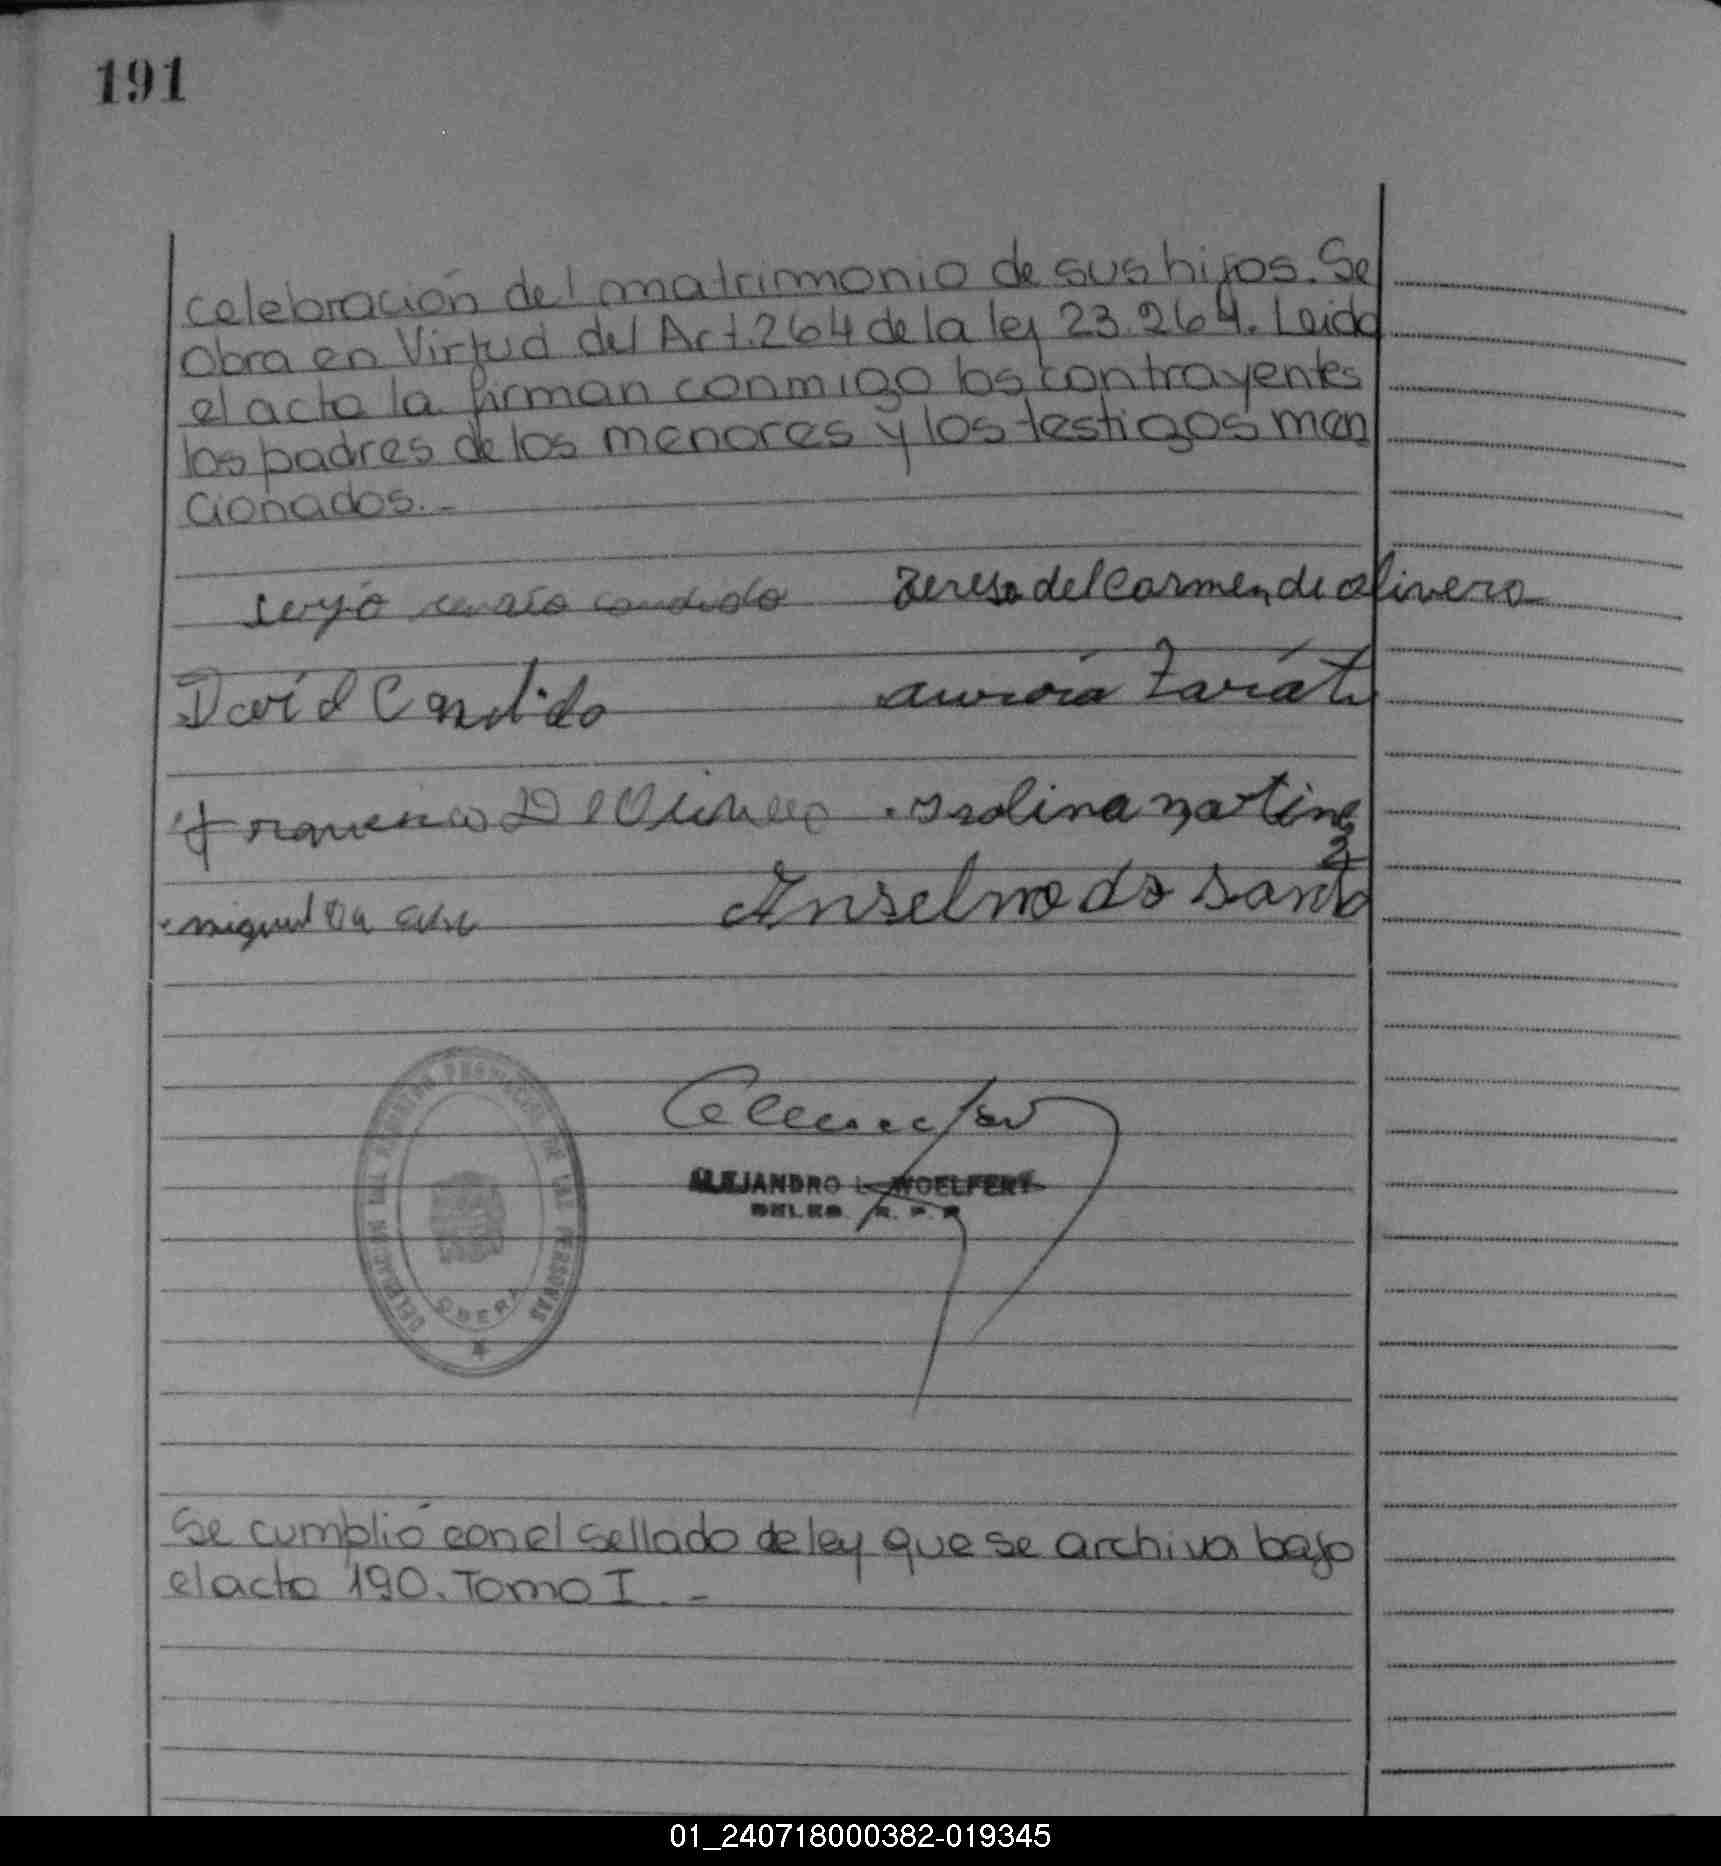 191
celebración del matrimonio de sus hijos. Se
obra en Virtud del Art. 264 de la ley 23.264. Leida
el acta la firman conmigo los contrayentes
los padres de los menores y los testigos men
cionados.-
candido Teresa del Carmen de olivera
David Candido aurora Zarate
Francisco D Isolina Martine
z
miguel Da Anselmo do Santo
ALEJANDRO L. WOELFERT
DELEG. R. P. P.
DELEGACION DEL REGISTRO PROVINCIAL DE LAS PERSONAS
OBERA
Se cumplió con el sellado de ley que se archiva bajo
el acta 190. Tomo I.-
01_240718000382-019345